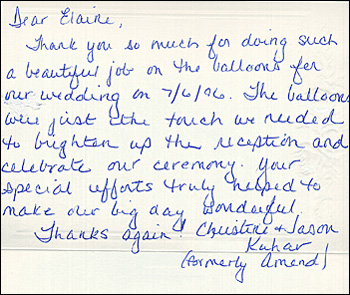 Dear Elaine,
Thank you so much for doing such
a beautiful job on the balloons for
our wedding on 7/6/96. The balloons
were just the touch we needed
to brighten up the reception and
celebrate our ceremony. Your
special efforts truly helped to
make our big day wonderful.
Thanks again! Christine & Jason
Kuhar
(formerly Amend)